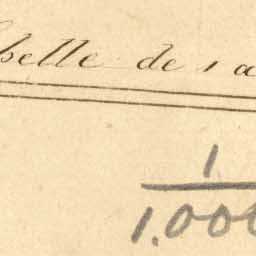 belle de 1 a
1
1.000